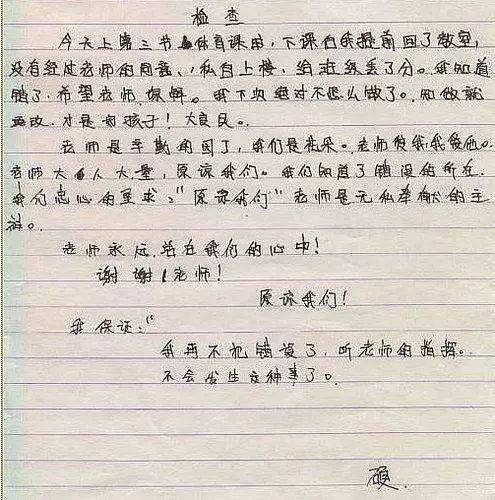 检查
今天上第三节体育课时,下课后我提前回了教室,
没有经过老师的同意、私自上楼,给班级丢了分。我知道
错了.希望老师原解。我下次绝对不怎么做了。知做就
改.才是好孩子!大良民。
老师是辛勤的园丁,我们是花朵。老师爱我,我爱他。
老师大人大量,原谅我们。我们知道了错误的所在.
我们忠心的要求:“原谅我们”老师是无私奉献的主
。
老师永远活在我们的心中!
谢谢!老师!
原谅我们!
我保证:“
我再不犯错误了.听老师的指挥。
不会发生这种事了。